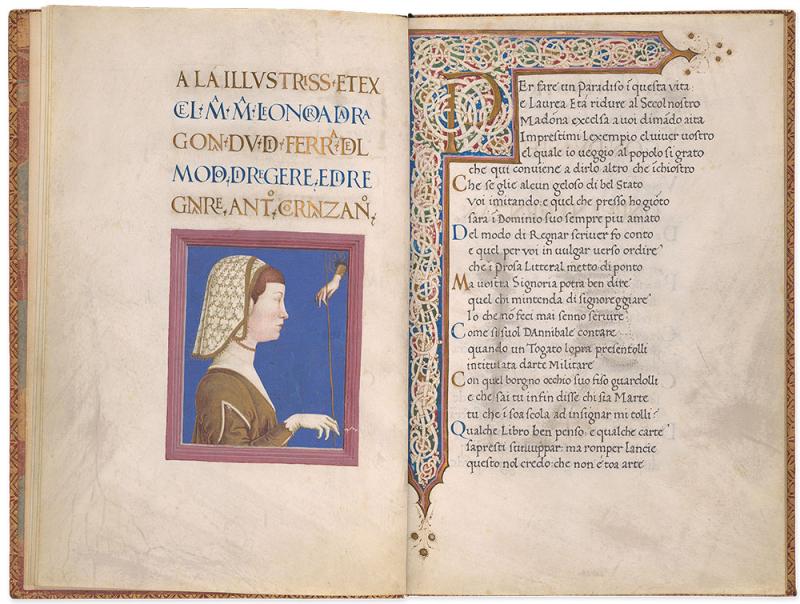 A LA ILLVSTRISS·ET EX
CEL·M·M·LEONORA DRA
GON·DV·D·FERRA·DEL
MODO·D REGERE·ED RE
GNRE·ANTO·CORNZAN
3
PEr fare un Paradiso ī questa vita
e Laurea Etá ridure al Secol nostro
Madona excelsa a uoi dimādo aita
Imprestimi Lexempio el uiuer uostro
el quale io ueggio al popolo si grato
che qui conuiene a dirlo altro che īchiostro
Che se glie alcun geloso di bel Stato
voi imitando: e quel che presso ho gioto
sara i Dominio suo sempre piu amato
Del modo di Regnar scriuer fo conto
e quel per voi in uulgar verso ordire
che ī Prosa Litteral metto di ponto
Ma uostra Signoria potra ben dire
quel chi mintenda di signoreggiare
Io che nō feci mai senno seruire
Come si suol DAnnibale contare
quando un Togato lopra presentolli
intitulata darte Militare
Con quel borgno occhio suo fiso guardolli
e che sai tu infin disse chi sia Marte
tu che ī soa scola ad insignar mi tolli?
Qualche Libro ben penso e qualche carte
sapresti suiluppar: ma romper lancie
questo nol credo: che non é toa arte